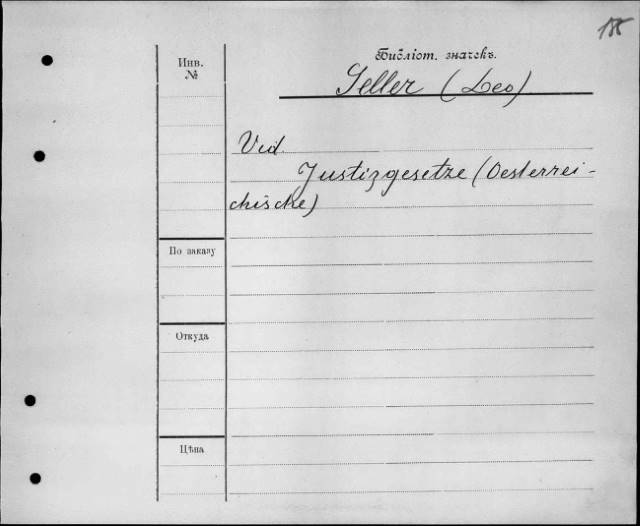 155
Инв.
№
Библіот. значекъ.
Geller (Leo)
Vid.
Justizgesetze (Oesterrei-
chische)
По заказу
Откуда
Цѣна